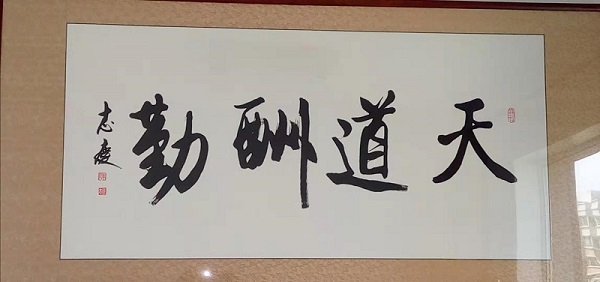 天道酬勤
志庆